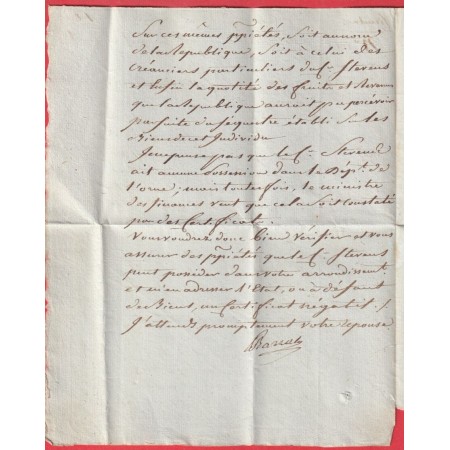 Sur ces mêmes ppriétés, soit au nom
de la République, soit à celui des
créanciers particuliers du C. Stevens
et enfin la quotité des fruits et Revenus
que la République auroit pu percevoir
par suite du séquestre établi sur les
Biens de cet Individu
Je ne pense pas que le C. Stevens
ait aucune possession dans le Dépt. de
l'orne; mais toutefois, le ministre
des finances veut que cela soit constaté
par des Certificats.
Vous voudrez donc bien vérifier et vous
assurer des ppriétés que le C. Stevens
peut posséder dans votre arrondissemt.
et m'en adresser l'Etat, ou à défaut
de Biens, un Certificat négatif. /
J'attends promptement votre réponse